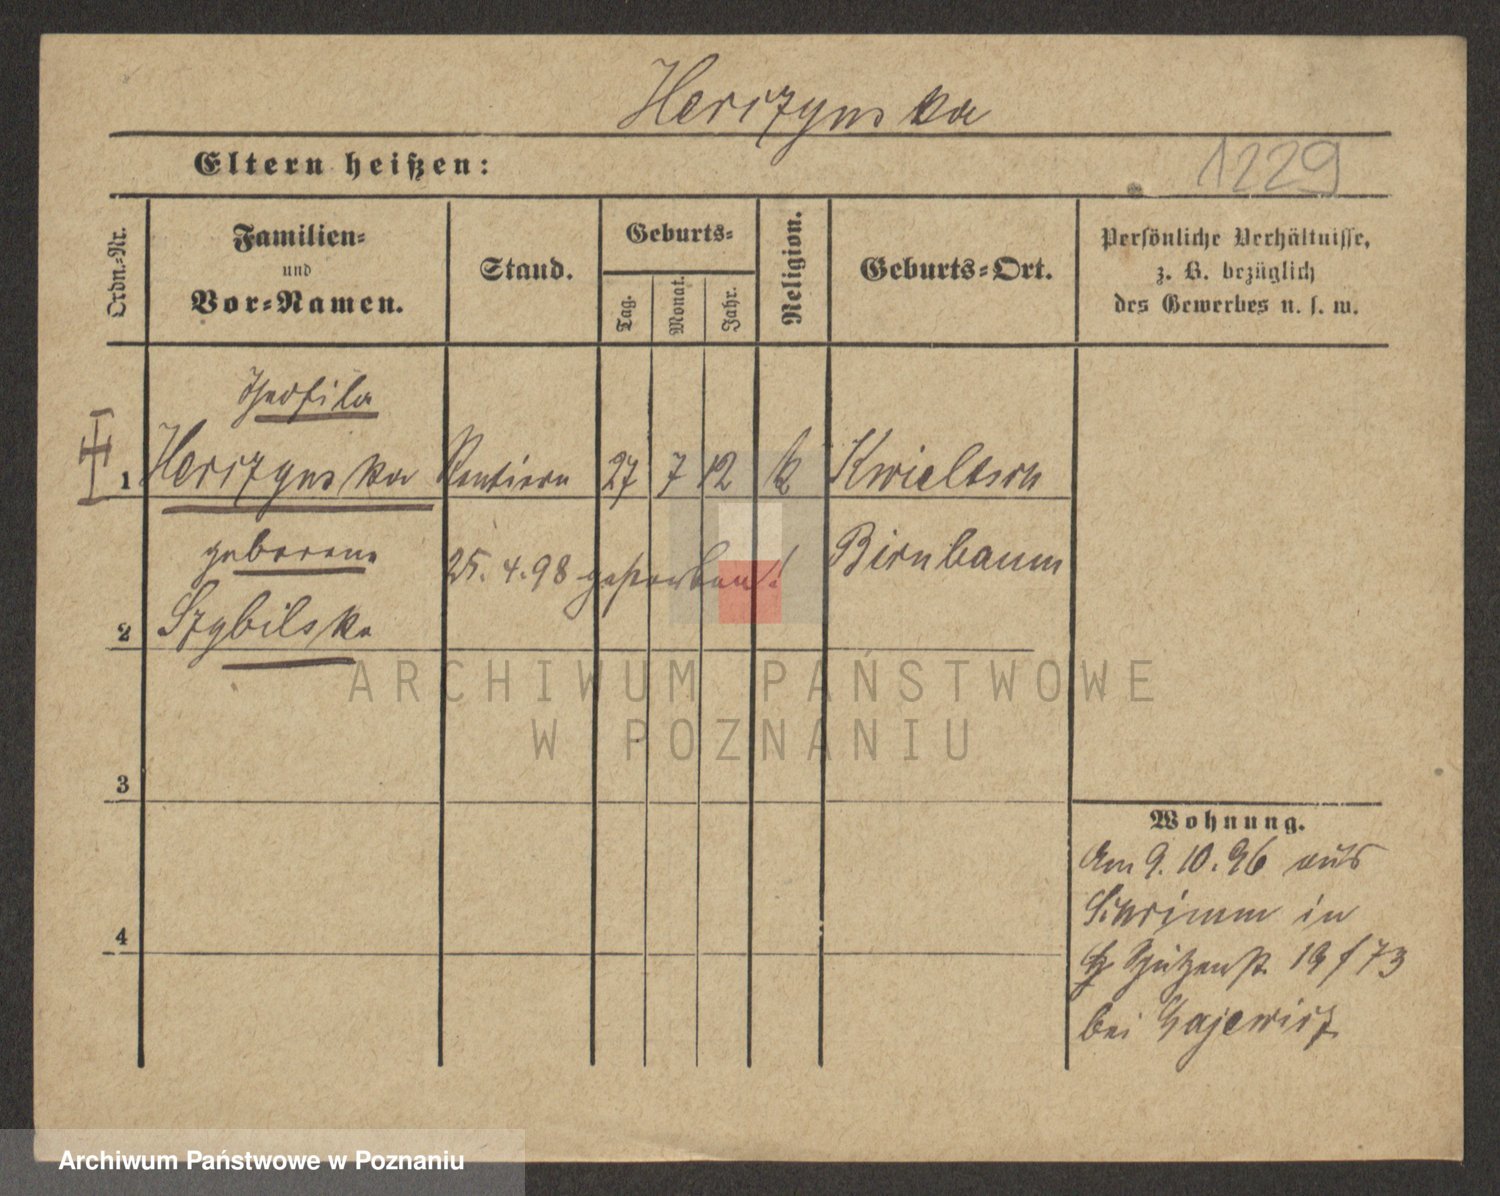 Herrzynska
Eltern heißen:
1229
Ordn.-Nr.
Familien-
und
Vor-Namen.
Stand.
Geburts-
Tag.
Monat.
Jahr.
Religion.
Geburts-Ort.
Persönliche Verhältnisse,
z. B. bezüglich
des Gewerbes u. s. w.
Theofila
1 Herrzynska Rentiere 27 7 12 k Kwieltsch
geborene
25. 4. 98 gestorben! Birnbaum
2 Szybilska
ARCHIWUM PAŃSTWOWE
W POZNANIU
3
4
Wohnung.
Am 9. 10. 96 aus
Schrimm in
Schützenst. 19 f 73
bei Gajewicz
Archiwum Państwowe w Poznaniu